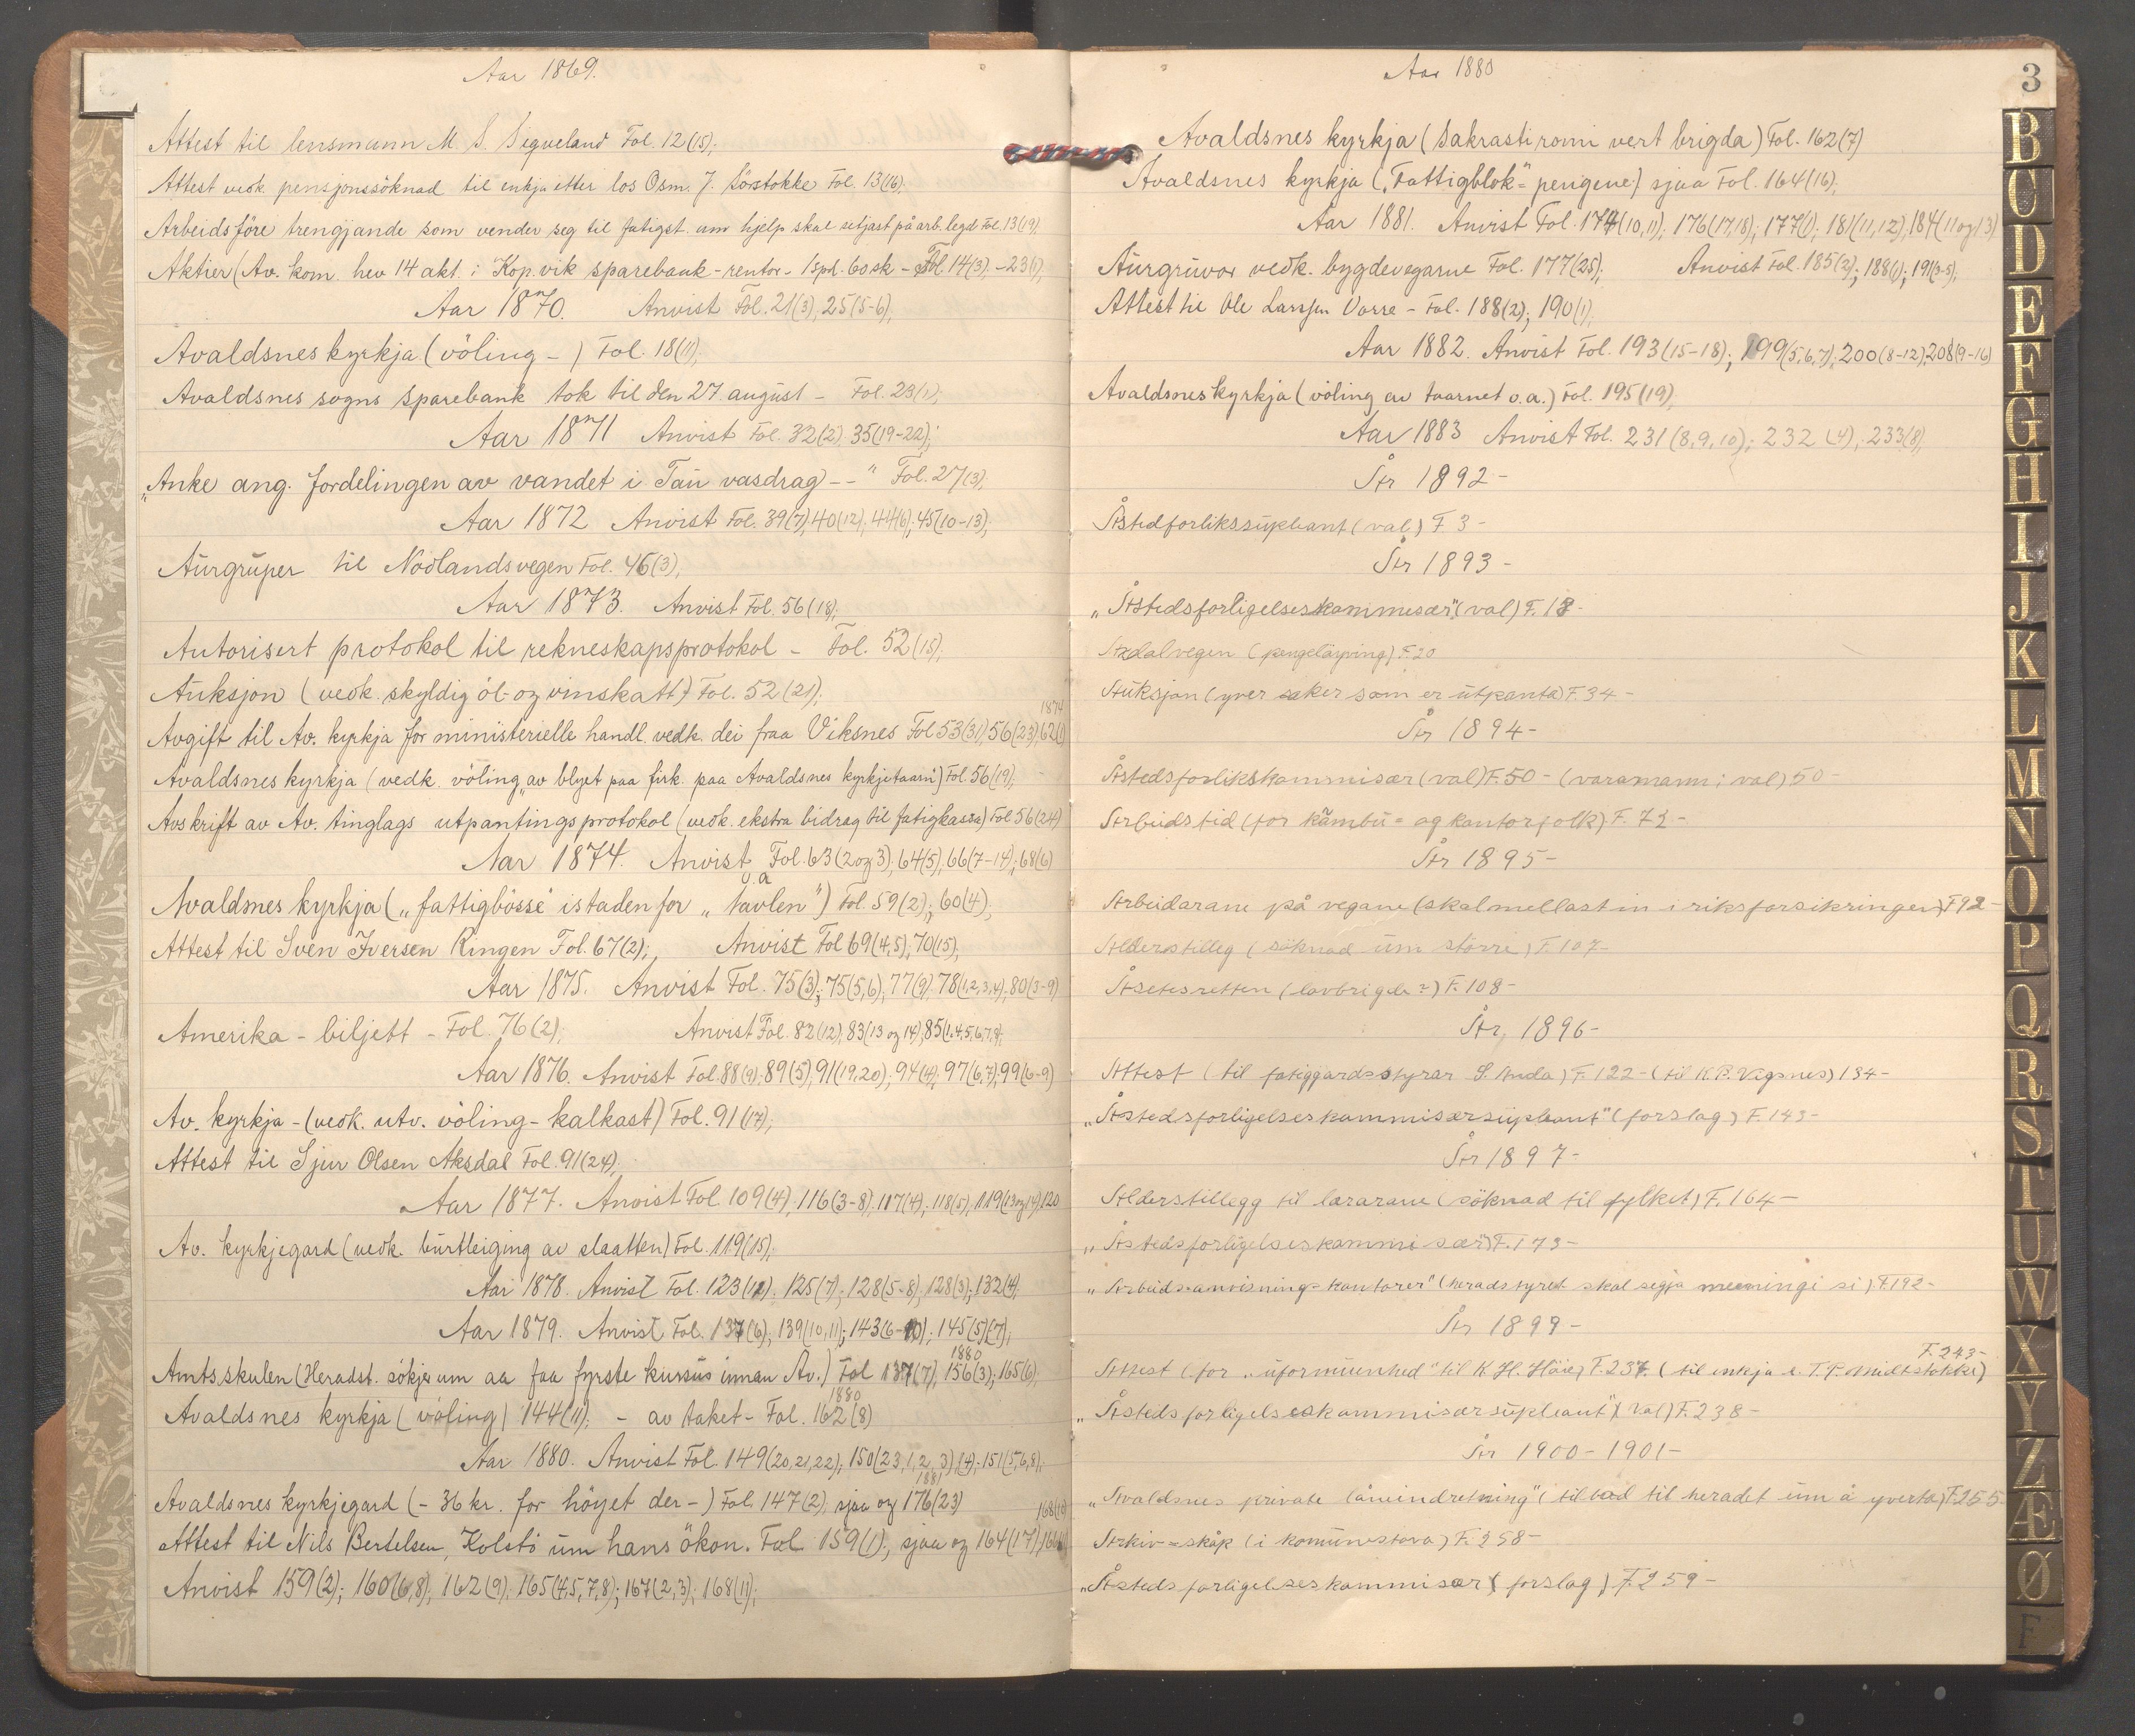 Aar 1869.
Attest til lensmann M. S. Segveland Fol. 12(15);
Attest vedk. pensjonssöknad til enkja etter los Osm. J. Sörstokke Fol. 13(16).
Arbeidsföre trengjande som vender seg til fatigst. um hjelp skal setjast på arb. legd Fol. 13(19).
Aktier (Av. kom. hev 14 akt. i Kop.vik sparebank - rentor - 1 spd. 60 sk - Fol. 14(3). - 23(1);
Aar 1870. Anvist Fol. 21(3), 25(5-6);
Avaldsnes kyrkja (völing -) Fol. 18(11);
Avaldsnes sogns sparebank tok til den 27. august - Fol. 23(1);
Aar 1871 Anvist Fol. 32(2). 35(19-22);
"Anke ang. fordelingen av vandet i Tau vasdrag -- " Fol. 27(3);
Aar 1872 Anvist Fol. 39(7), 40(12); 44(6); 45(10-13);
Aurgruper til Nodlandsvegen Fol. 46(3),
Aar 1873. Anvist Fol. 56(18);
Autorisert protokol til rekneskapsprotokol - Fol. 52(15);
Auksjon (vedk. skyldig öl- og vinskatt) Fol. 52(21);
1874
Avgift til Av. kyrkja for ministerielle handl. vedk. dei fraa Viksnes Fol 53(31), 56(23), 62(1)
Avaldsnes kyrkja (vedk. völing "av blyet paa firk. paa Avaldsnes kyrkjetaarn") Fol. 56(19);
Avskrift av Av. tinglags utpantingsprotokol (vedk. ekstra bidrag til fatigkassa) Fol 56(24)
Aar 1874. Anvist Fol. 63(2 og 3); 64(5), 66(7-14); 68(6)
o. a
Avaldsnes kyrkja ("fattigbösse" istaden for "tavlen") Fol. 59(2); 60(4),
Attest til Sven Iversen Ringen Fol. 67(2); Anvist Fol 69(4,5); 70(15),
Aar 1875. Anvist Fol. 75(3); 75(5,6); 77(9). 78(1,2,3,4), 80(3-9)
Amerika - biljett - Fol. 76(2), Anvist Fol. 82(12), 83(13 og 14), 85(1,4,5,6,7,8);
Aar 1876. Anvist Fol. 88(9), 89(5), 91(19,20); 94(4); 97(6,7); 99(6-9)
Av. kyrkja - (vedk. utv. völing - kalkast) Fol. 91(17);
Attest til Sjur Olsen Aksdal Fol. 91(24),
Aar 1877. Anvist Fol. 109(4), 116(3-8); 117(4); 118(5), 119(13 og 14), 120
Av. kyrkjegard (vedk. burtleiging av slaatten) Fol. 119(15);
Aar 1878. Anvist Fol. 123(12). 125(7); 128(5-8), 128(3); 132(4),
Aar 1879. Anvist Fol. 137(6); 139(10,11); 143(6-10); 145(5)(7);
1880
Amtsskulen (Heradst. sökjer um aa faa fyrste kursus innan Av.) Fol 137(7), 156(3), 165(6)
1880
Avaldsnes kyrkja (völing) 144(11); - av taket - Fol. 162(8)
Aar 1880. Anvist Fol. 149(20,21,22); 150(23,1,2,3)(4); 151(5,6,8);
1881
Avaldsnes kyrkjegard (- 36 kr. for höyet der -) Fol. 147(2), sjaa og 176(23)
168(19)
Attest til Nils Bertelsen, Kolstö um hans ökon. Fol 159(1), sjaa og 164(17),
Anvist 159(2); 160(6,8), 162(9). 165(4,5,7,8); 167(2,3); 168(11);
3
Aar 1880
Avaldsnes kyrkja (Sakrastiromi vert brigda) Fol. 162(7)
Avaldsnes kyrkja ("Fattigblok"-pengene) sjaa Fol. 164(16);
Aar 1881. Anvist Fol. 174(10,11); 176(17,18), 177(1); 181(11,12), 184(11 og 13)
Aurgruvor vedk. bygdevegarne Fol. 177(25); Anvist Fol. 185(2); 188(1); 191(3-5),
Attest til Ole Larssen Vorre - Fol. 188(2); 190(1),
Aar 1882. Anvist Fol. 193(15-18); 199(5,6,7), 200(8-12), 208(9-16)
Avaldsnes kyrkja (völing av taarnet o.a.) Fol. 195(19),
Aar 1883 Anvist Fol. 231(8,9,10); 232(4), 233(8),
År 1892 -
Åstedforlikssupleant (val) F 3 -
År 1893 -
"Åstedsforligelseskommisær" (val) F. 18 -
Axdalvegen (pengelöyving) F. 20
Auksjon (yver saker som er utpanta) F. 34 -
År 1894 -
Åstedsforlikskommisær (val) F. 50 - (varamann; val) 50 -
Arbeidstid (for krambu- og kontorfolk) F. 72 -
År 1895 -
Arbeidarane på vegane (skal mellast in i riksforsikringen) F 92 -
Alderstilleg (söknad um större) F. 107 -
Åsetesretten (lovbrigde?) F. 108 -
År, 1896 -
Attest (til fatiggardsstyrar S. Anda) F. 122 - (til K. P. Vigsnes) 134 -
"Åstedsforligelseskommisærsupleant" (forslag) F. 143 -
År 1897 -
Alderstillegg til lærarane (söknad til fylket) F. 164 -
"Åstedsforligelseskommisær") F. 173 -
"Arbeidsanvisnings kontorer" (heradstyret skal segja meiningi si) F. 192 -
År 1899 -
F. 243 -
Attest (for "uformuenhed" til K. H. Höie) F. 237. (til enkja e. T. P. Midtstokke)
"Åstedsforligelseskommisærsupleant" (val) F. 238 -
År 1900 - 1901 -
"Avaldsnes private låneindretning" (tilbod til heradet um å yverta) F. 255
Arkiv-skåp (i komunestova) F. 258 -
"Åstedsforligelseskommisær" (forslag) F. 259 -
B
C
D
E
F
G
H
I
J
K
L
M
N
O
P
Q
R
S
T
U
W
X
Y
Z
Æ
Ø
F